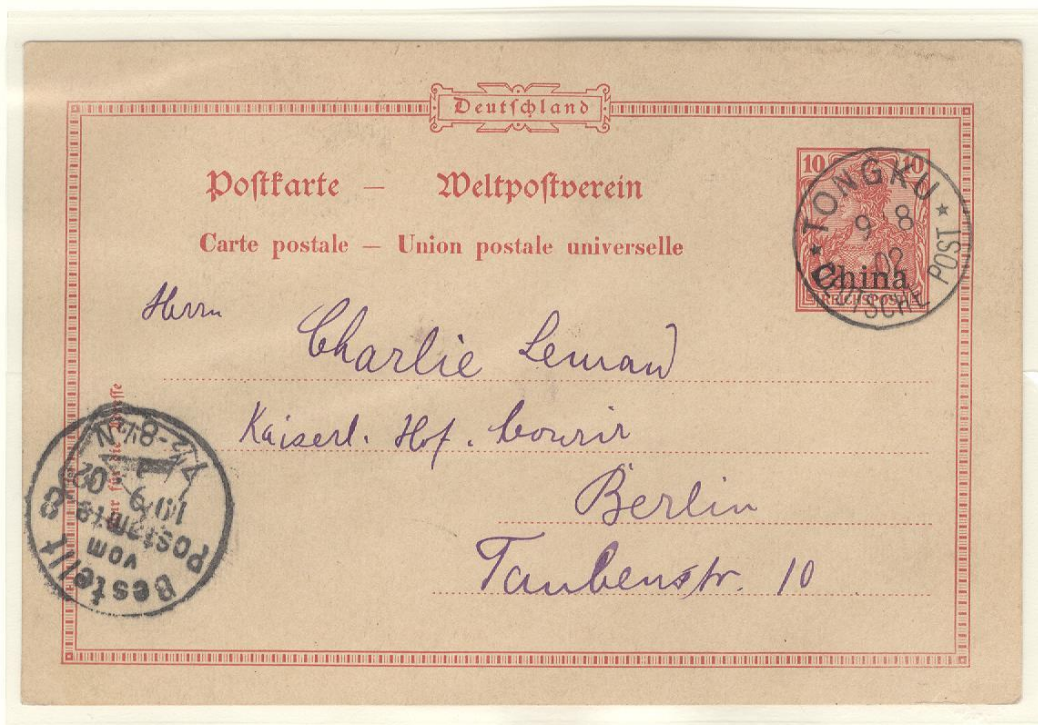 Deutschland
Postkarte — Weltpostverein
Carte postale — Union postale universelle
10 10
China
REICHSPOST
* TONGKU *
9 8
02
DEUTSCHE POST
Herrn
Charlie Leman
Kaiserl. Hof. Courir
Berlin
Taubenstr. 10
Nur für die Adresse
Bestellt
vom
Postamte 8
02
N